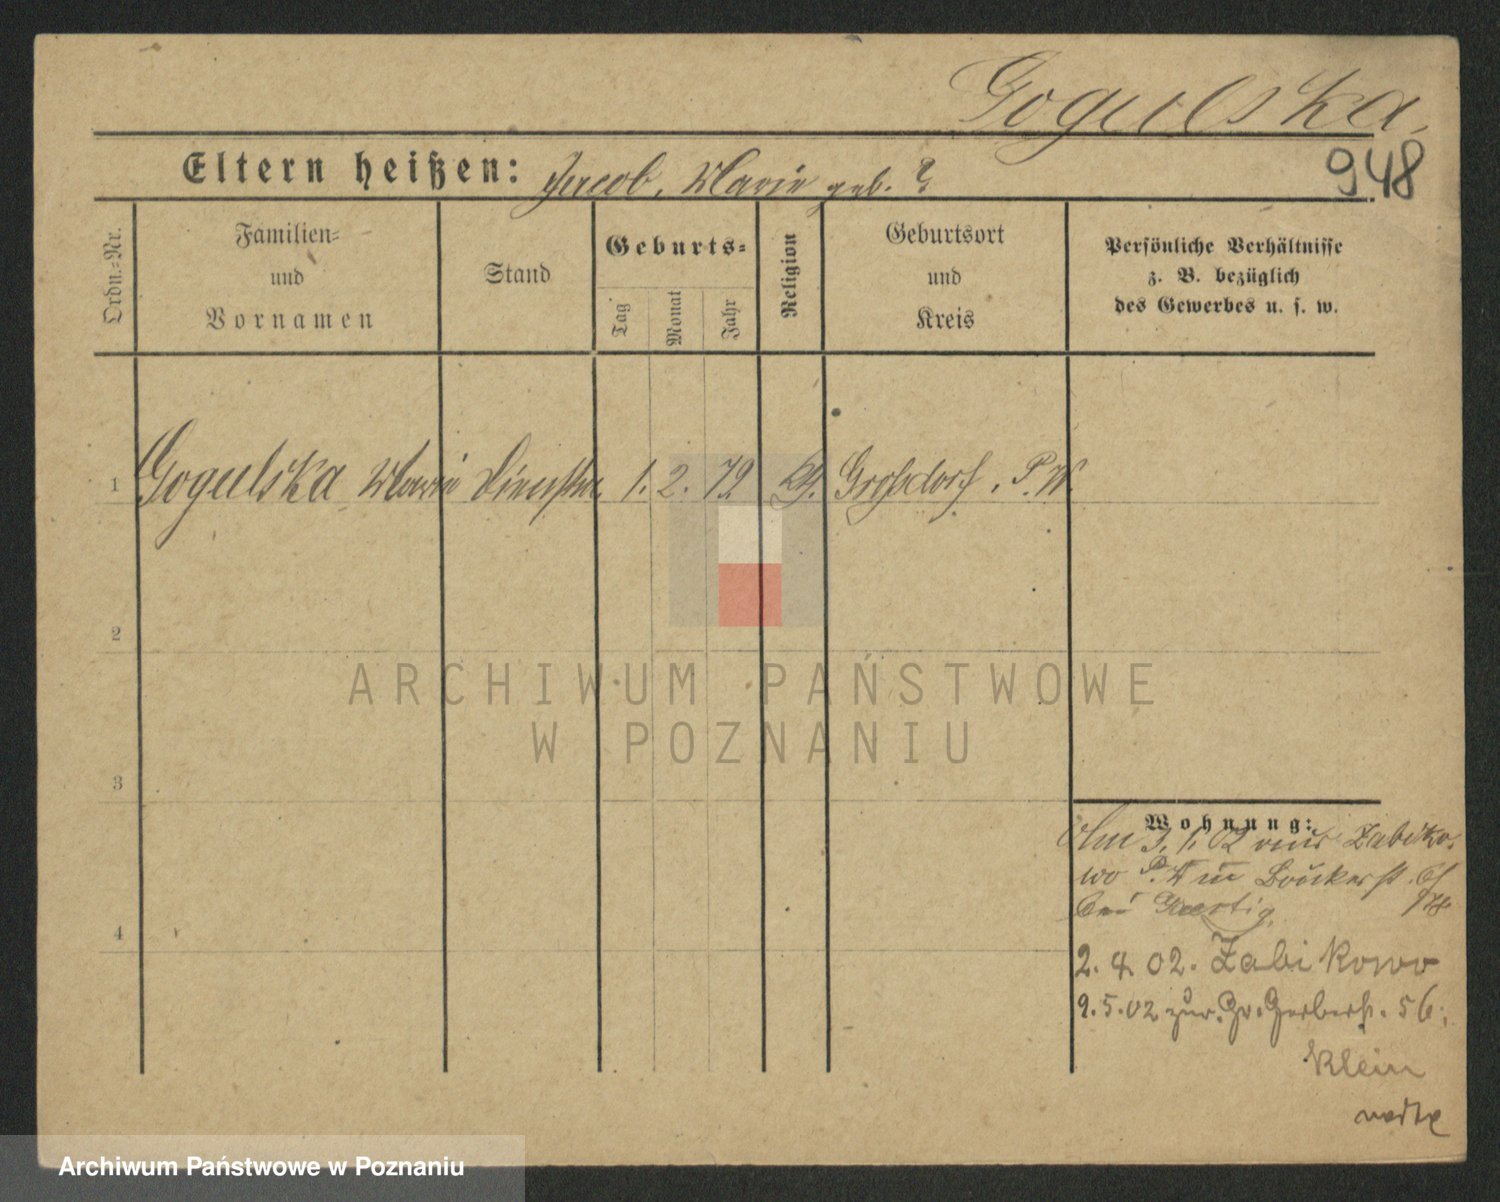 Gogulska.
948
Eltern heißen: Jacob, Marie geb. ?
Ordn.-Nr.
Familien-
und
Vornamen
Stand
Geburts-
Tag
Monat
Jahr
Religion
Geburtsort
und
Kreis
Persönliche Verhältnisse
z. B. bezüglich
des Gewerbes u. s. w.
1 Gogulska Marie 1. 2. 79. Grossdorf, P. W.
2
ARCHIWUM PAŃSTWOWE
W POZNANIU
3
Wohnung:
3. 1. 02 Zabiko-
wo
bei
4
2. 4. 02. Zabikowo
9. 5. 02 zur. Gr. Gerberst. 56.
Klein
Archiwum Państwowe w Poznaniu